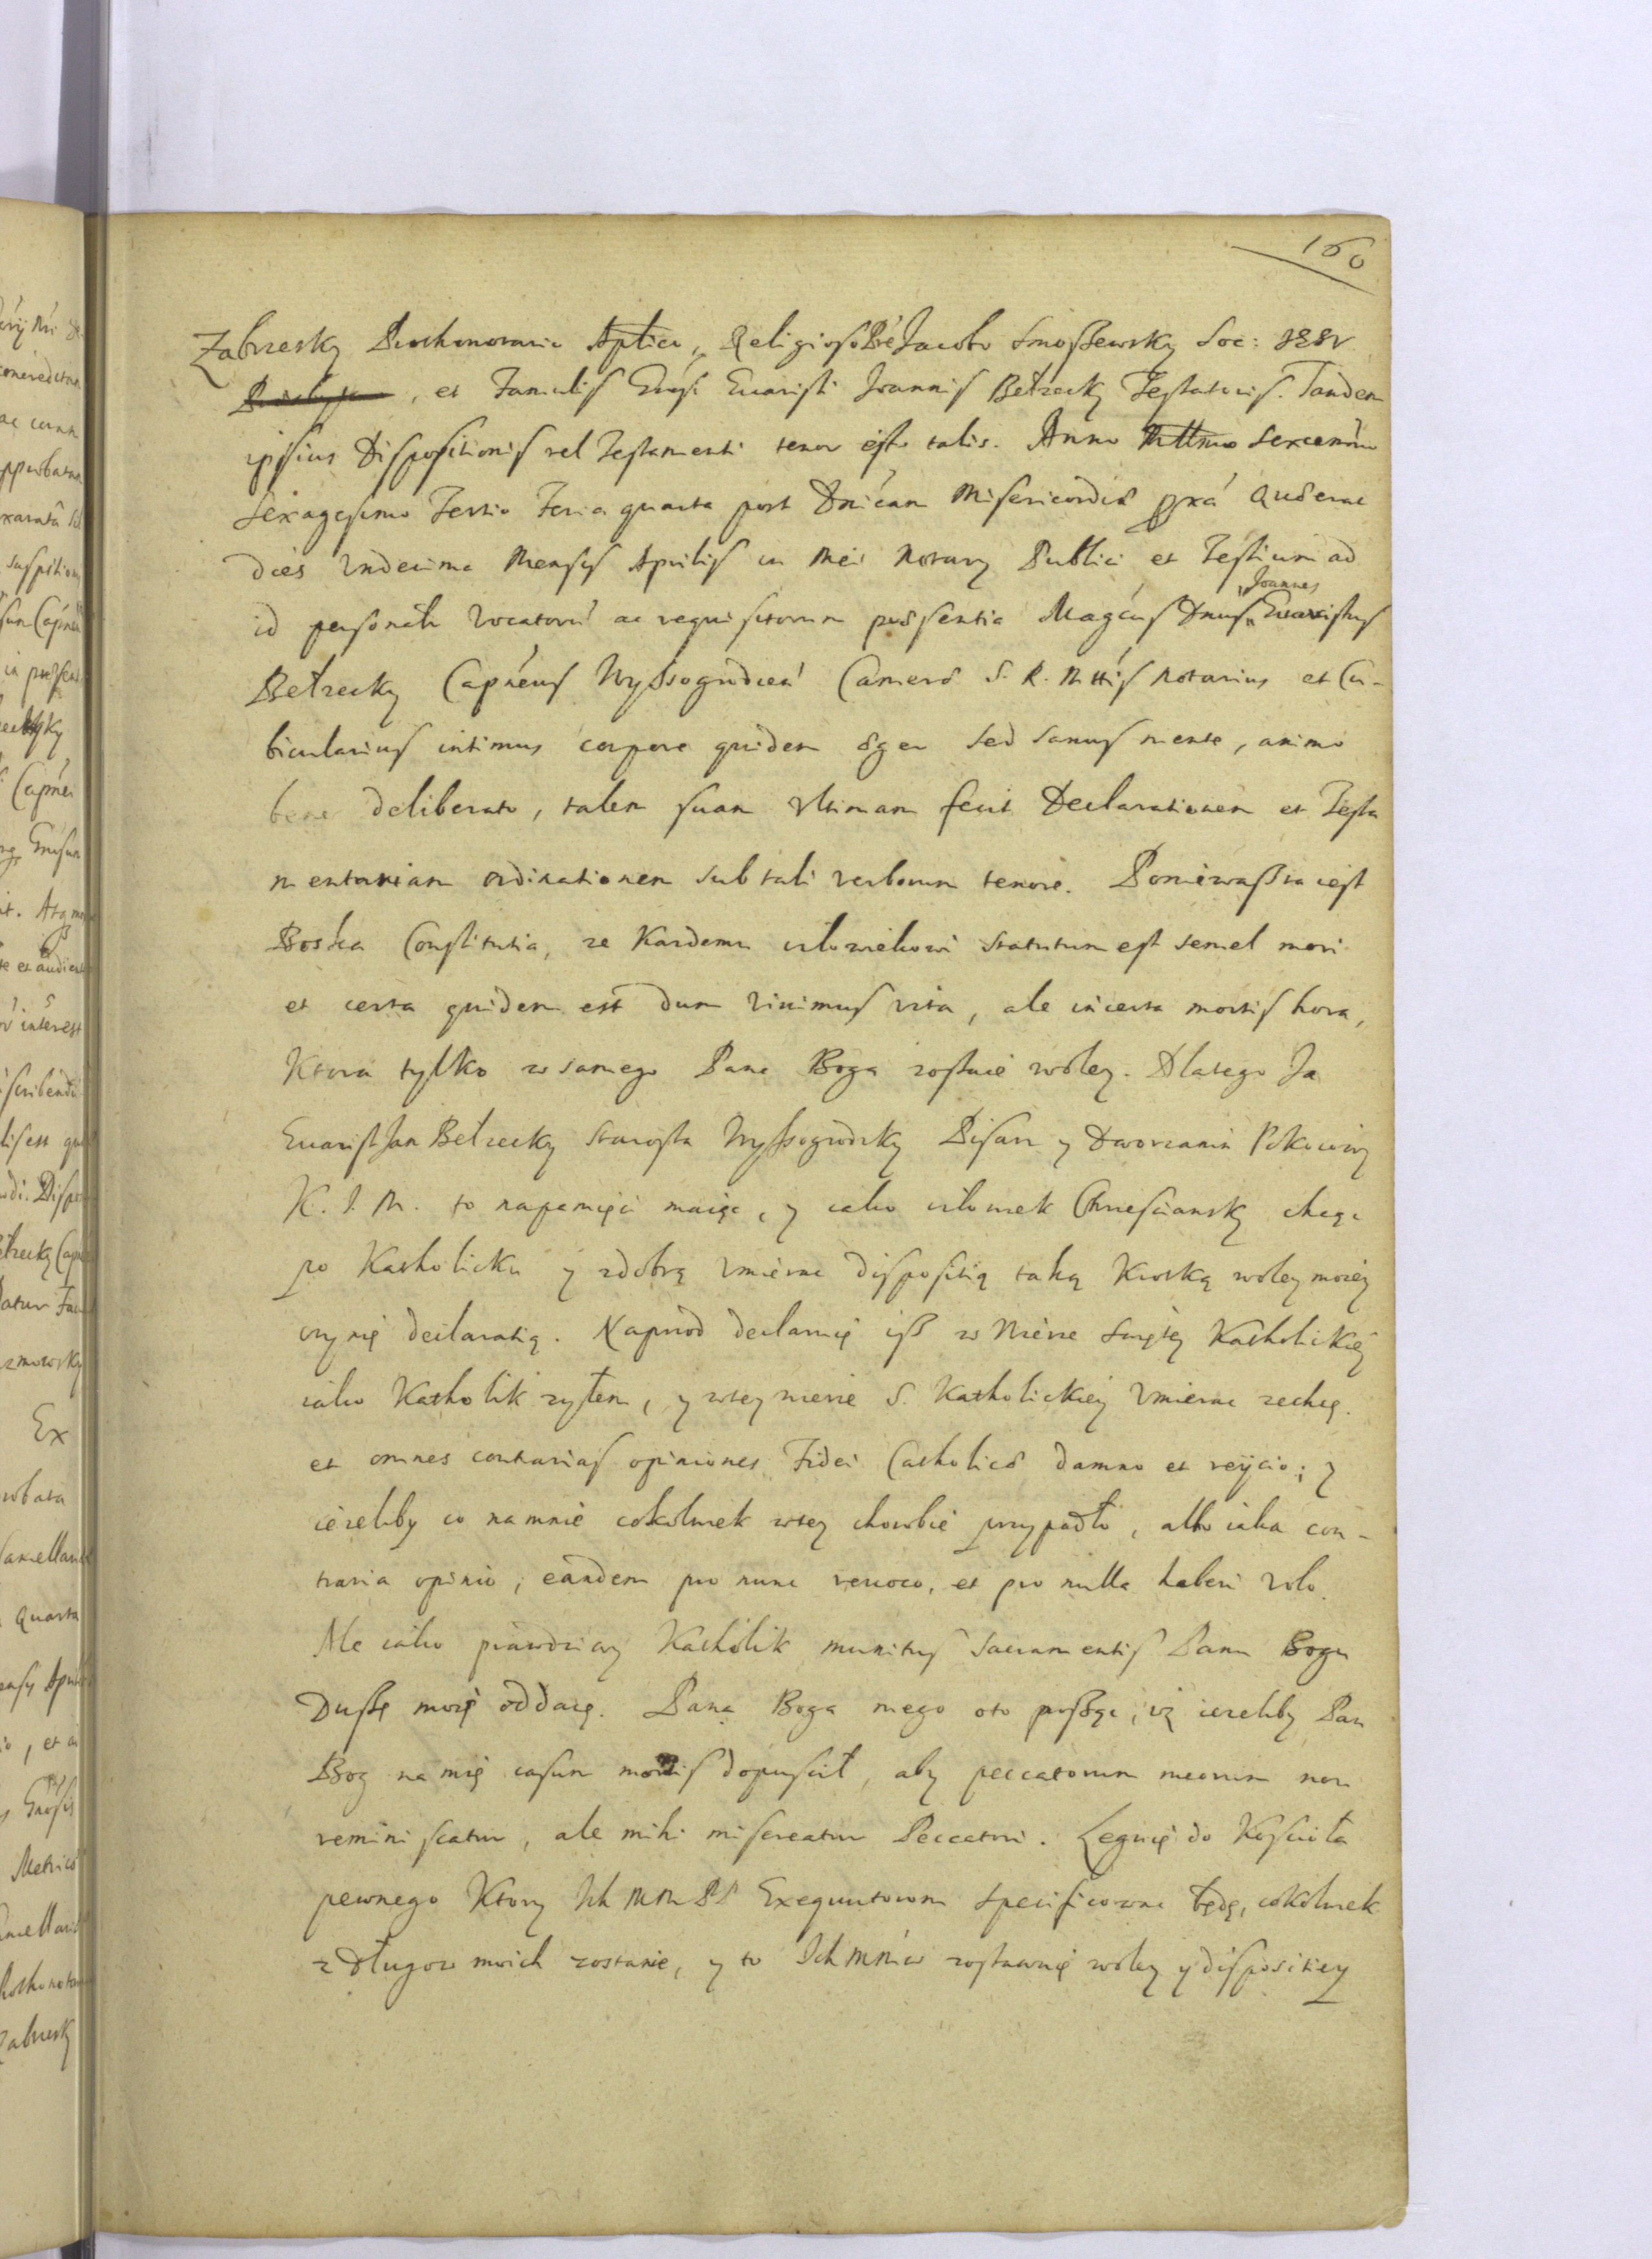 160
Zabrzesky Prothonotario Aptico, Religioso Pre Jacobo Smoszewsky Soc: JESV
, et Famulis Gnosi Euaristi Joannis Bełzecky Testatoris. Tandem
ipsius Dispositionis vel Testamenti tenor est talis. Anno Mllmo Sexcenmo
Sexagesimo Tertio Feria quarta post Dnicam Misericordiæ pxa quæ erat
dies Vndecima Mensis Aprilis in mei Notary Publici et Testium ad
id personalr vocatoru ac requisitorum præsentia Magcus Dnus Joannes Euaristus
Bełzecky Capneus Wyssogrodien Cameræ S. R. Mttis Notarius et Cu-
bicularius intimus corpore quidem æger sed sanus mente, animo
bene deliberato, talem suam Vltimam fecit Declarationem et Testa
mentariam ordinationem sub tali verborum tenore. Poniewasz ta iest
Boska Constitutia, ze Kazdemu człowiekowi statutum est semel mori
et certa quidem est dum viuimus vita, ale incerta mortis hora,
Ktora tylko w samego Pana Boga zostaie woley. Dlatego Ja
Euarist Jan Bełzecky Starosta Wyssogrodzky Pisarz y Dworzanin Pokoiowy
K. J. M. to napamięci maiąc, y iako człowiek Chrzesciansky chcąc
po Katholicku y zdobrą Vmierac dispositią taką Krotką woley moiey
czynię declaratią. Naprzod declaruię isz w Wierze Swiętey Katholickiey
iako Katholik zyłem, y wtey wierze S. Katholickiey Vmierac zechcę.
et omnes contrarias opiniones Fidei Catholicæ damno et reijcio; y
iezeliby co na mnie cokolwiek wtey chorobie przypadło, albo iaka con-
traria opinio, eandem pro nunc reuoco, et pro nulla haberi volo.
Ale iako prawdziwy Katholik munitus Sacramentis Panu Bogu
Duszę moię oddaię. Pana Boga mego oto proszę, iż iezeliby Pan
Bog na mię casum mortis dopuscił, aby peccatorum meorum non
reminiscatur, ale mihi misereatur Peccatori. Leguię do Koscioła
pewnego Ktory Ich MM PP Exequutorom specificowac będę, cokolwiek
z Długow moich zostanie, y to Ich Mciow zostawuię woley y dispositiey